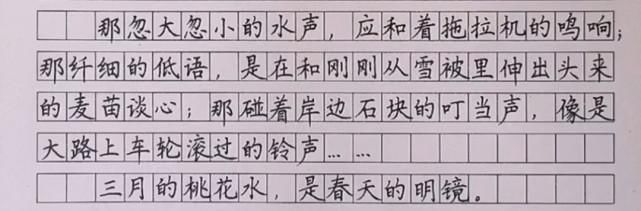 那忽大忽小的水声，应和着拖拉机的鸣响；
那纤细的低语，是在和刚刚从雪被里伸出头来
的麦苗谈心；那碰着岸边石块的叮当声，像是
大路上车轮滚过的铃声……
三月的桃花水，是春天的明镜。